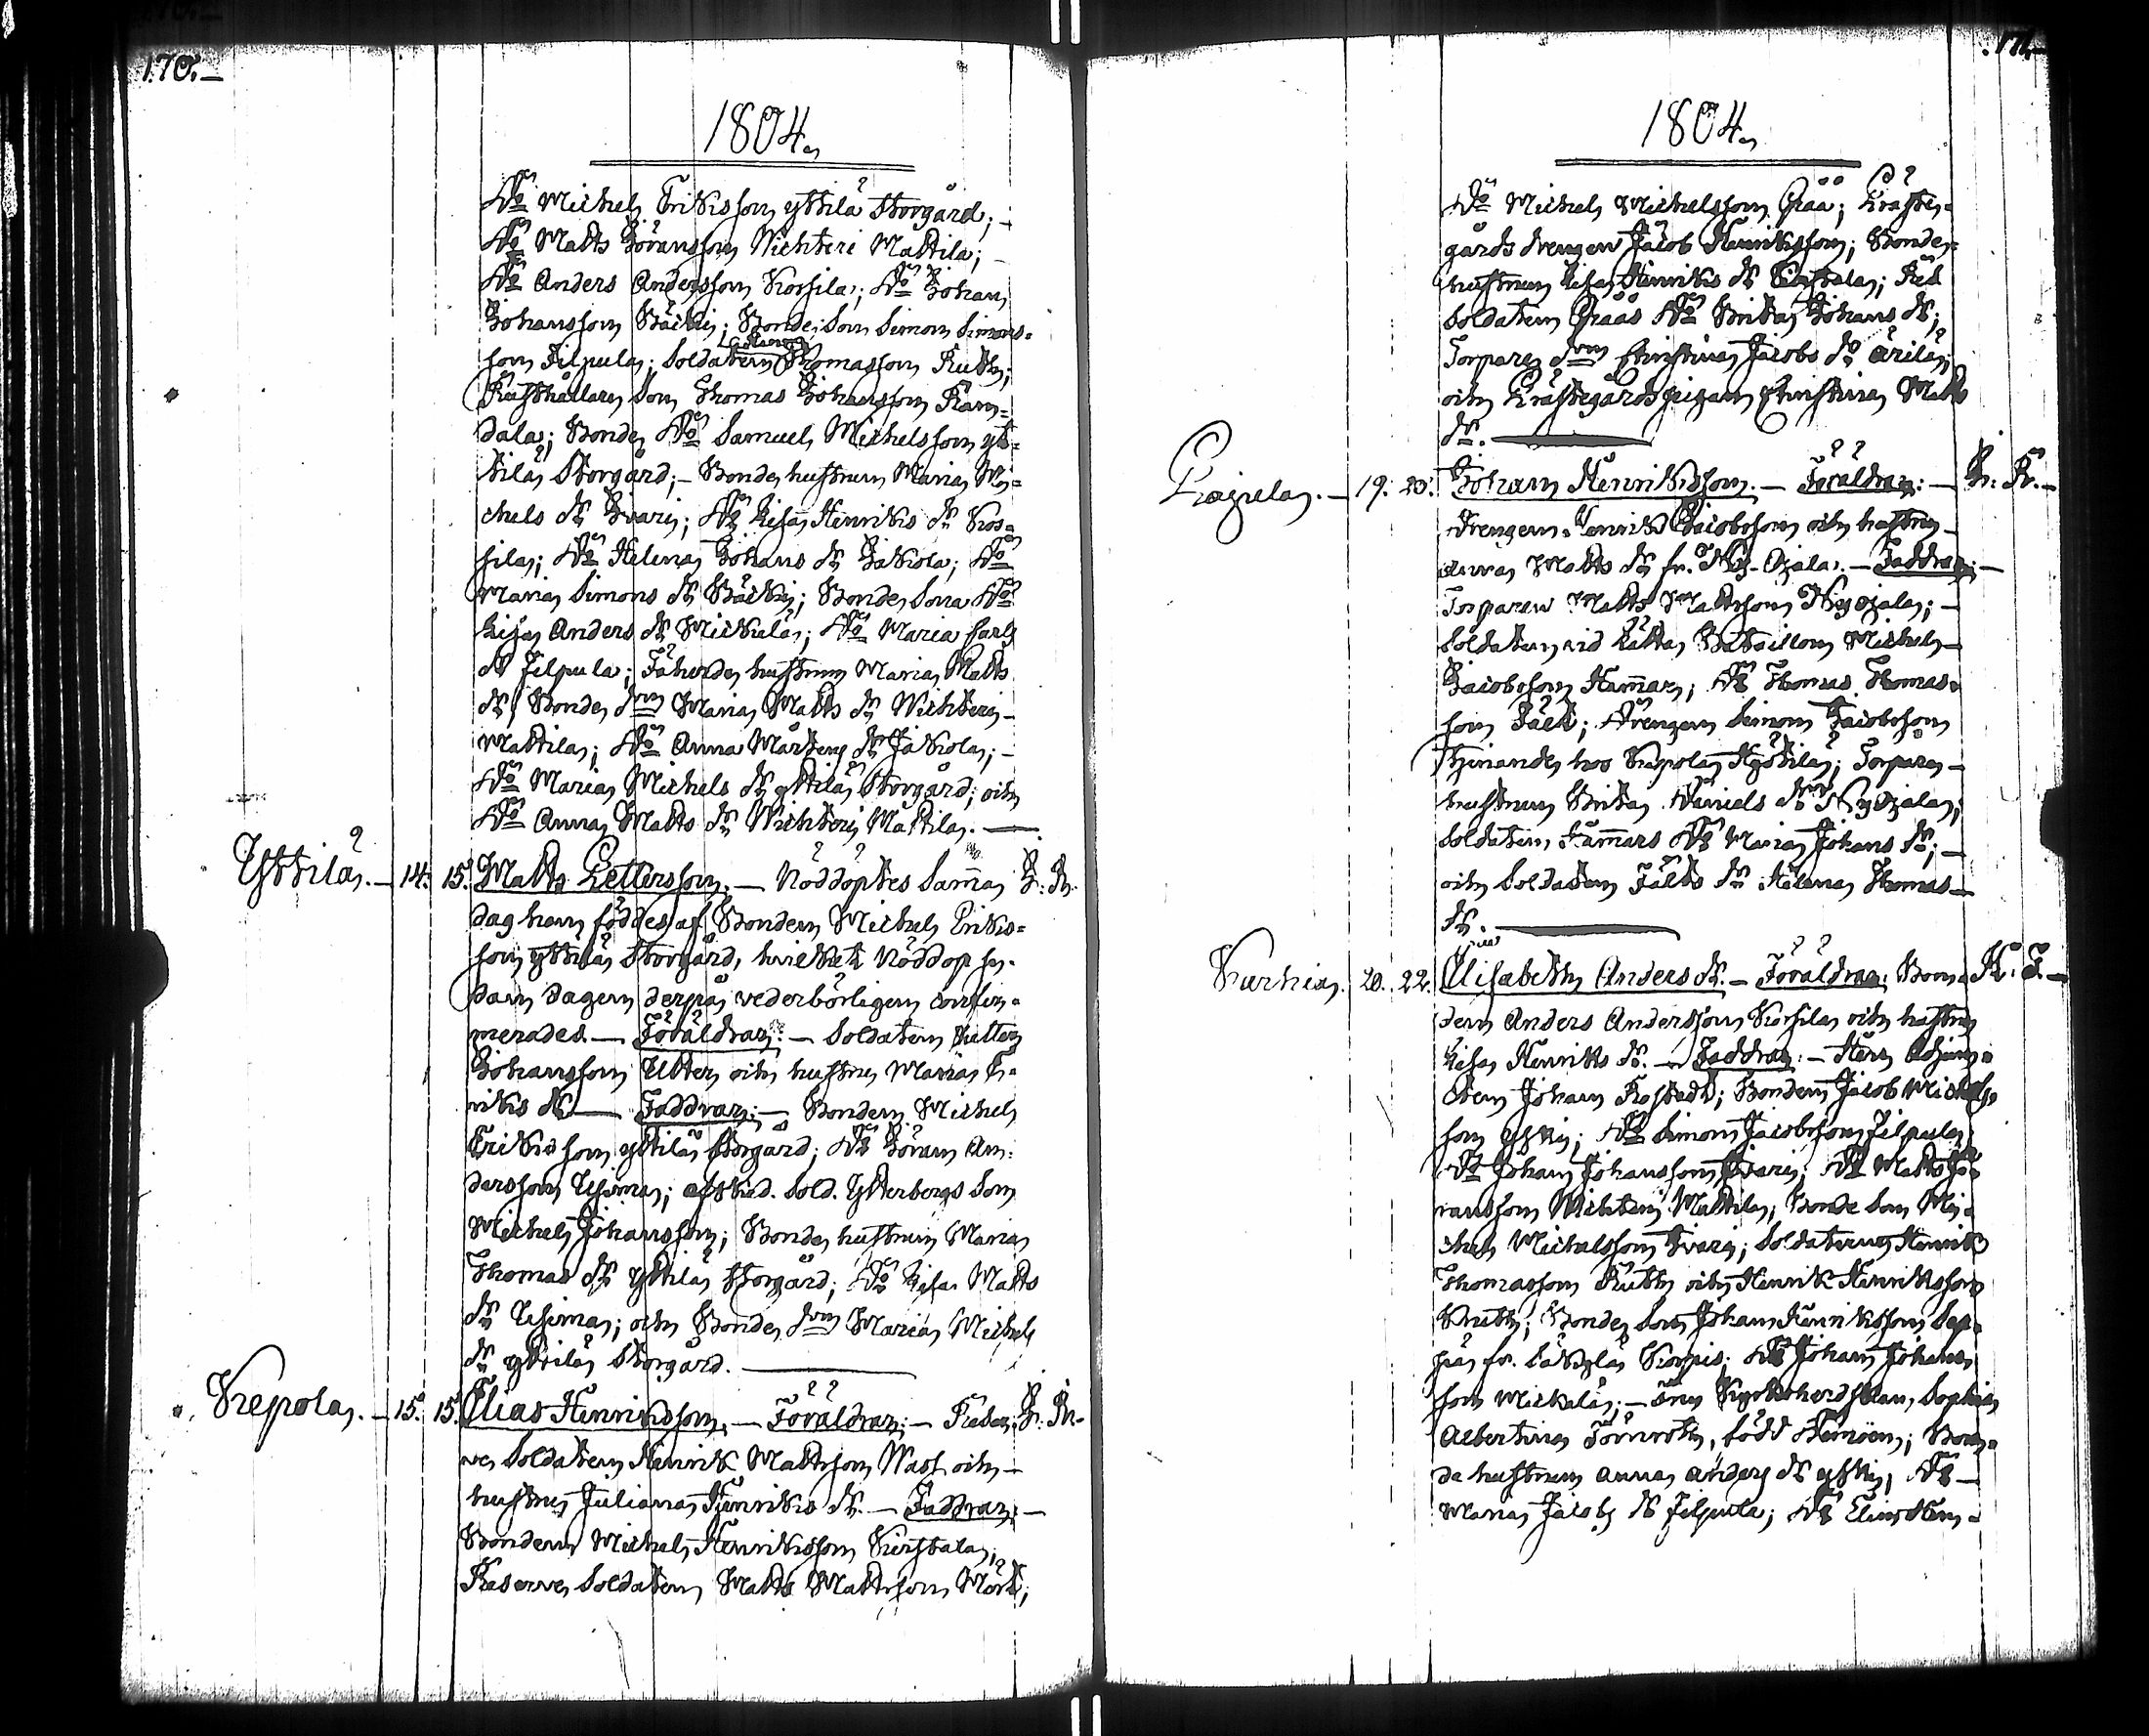 170.
1804.
D:o Michel Eriksson Yttilä Storgård; -
D:o Matts Göransson Wichteri Mattila;
D:o Anders Andersson Korsila; D:o Johan
Johansson Bäcki; Bonde Son Simon Simons-
son Filpula; Soldaten Thomasson Ruth;
Rusthållare Son Thomas Johansson Ram-
dala; Bonde D:o Samuel Michelsson Yt-
tilä Storgård; - Bonde hustrun Maria Mi-
chels dr Ivari; D:o Lisa Henriks dr Kor-
sila; D:o Helena Johans dr Jakola; D:o
Maria Simons dr Bäcki; Bonde Sona D:o
Lisa Anders dr Mickälä; D:o Maria Carls
dr Filpula; Fäherde hustrun Maria Matts
dr; Bonde drn Maria Matts dr Wichteri
Mattila; D:o Anna Mårtens dr Jakola; -
D:o Maria Michels dr Yttilä Storgård; och
D:o Anna Matts dr Wichteri Mattila. —
Yttilä. - 14. 15. Matts Petterson. — Nöddöptes samma
dag han föddes af Bonden Michel Eriks-
son Yttilä Storgård, hvilket Nöddop se-
dan dagen derpå vederbörligen confir-
merades. — Föräldrar: - Soldaten Petter
Johansson Utter och hustru Maria E-
riks dr — Faddrar: - Bonden Michel
Eriksson Yttilä Storgård; D:o Göran An-
dersson Uhima; afsked. Sold. Ytterbergs Son
Michel Johansson; Bonde hustrun Maria
Thomas dr Yttilä Storgård; D:o Lisa Matts
dr Uhima; och Bonde drn Maria Michels
dr Yttilä Storgård. —
Kepola. - 15. 15. Elias Henriksson. - Föräldrar: - Reser-
ve Soldaten Henrik Mattsson Wass och
hustru Juliana Henriks dr. - Faddrar: -
Bonden Michel Henriksson Kirstala;
Reserve Soldaten Matts Mattsson Mört;
171.
1804.
D:o Michel Michelsson Gråå; Präste-
gårds drengen Jacob Henriksson; Bonde
hustrun Lisa Henriks dr Kirstala; Res
Soldaten Gråås D:o Brita Johans dr;
Torpare drn Christina Jacobs dr Ärilä;
och Prästegårds pigan Christina Matts
dr. —
19. 20. Johan Henriksson. - Föräldrar: -
Drengen Henrik Jacobsson och hustru
Anna Matts dr fr. Ny-Ojala. - Faddrar: -
Torparen Matts Mattsson Ny Ojala; -
Soldaten vid Lätta Bataillon Michel
Jacobsson Hammar; D:o Thomas Thomas-
son Fält; Drengen Simon Jacobsson
tjenande hos Kepola Hyötilä; Torpare
hustrun Brita Daniels dr Ny Ojala;
Soldaten Hammars D:o Maria Johans dr; -
och Soldaten Fälts dr Helena Thomas
dr. —
Kurhia. 20. 22. Elisabeth Anders dr. - Föräldrar: Bon-
den Anders Andersson Korsila och hustru
Lisa Henriks dr. - Faddrar: - Herr Adjunc-
ten Johan Rostedt; Bonden Jacob Michels-
son Yski; D:o Simon Jacobsson Filpula;
D:o Johan Johansson Ivari; D:o Matts Gö-
ransson Wichteri Mattila; Bonde Son Mi-
chel Michelsson Ivari; Soldaterne Henrik
Thomasson Ruth och Henrik Henriksson
Knuth; Bonde Son Johan Henriksson Sep-
pä fr. Säkylä Korpi; D:o Johan Johans-
son Mickälä; - Fru Kyrkoherdskan Sophia
Albertina Törnroth, född Hemoen; Bon-
de hustrun Anna Anders dr Yski; D:o
Maria Jacobs dr Filpula; D:o Elin Hen-